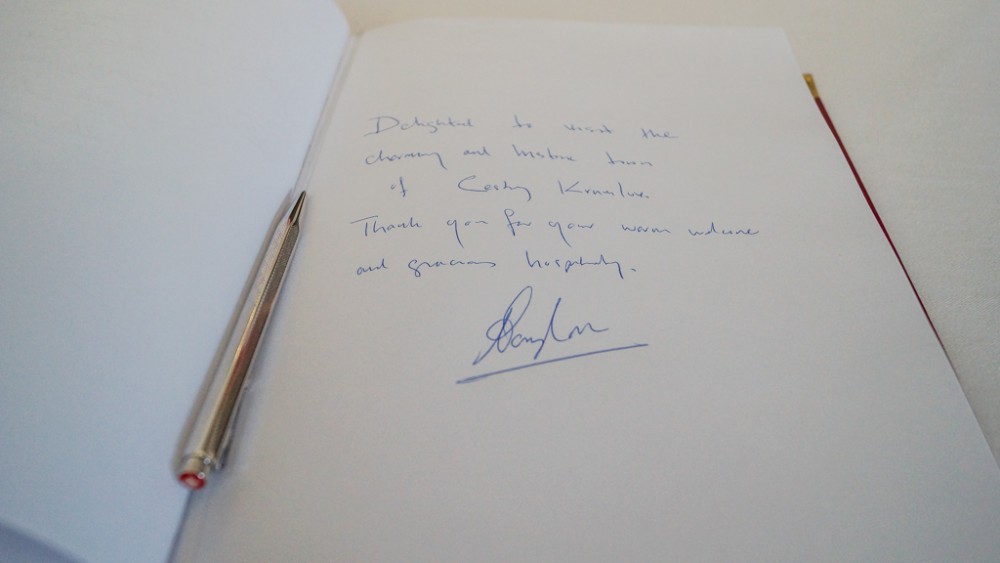 Delighted to visit the
charming and historic town
of Cesky Krumlov.
Thank you for your warm welcome
and gracious hospitality.